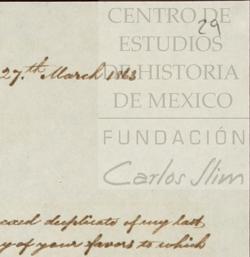 CENTRO DE
ESTUDIOS
DE HISTORIA
DE MEXICO
29
27th March 1863
FUNDACIÓN
Carlos Slim
duplicate of my last
y of your favors to which